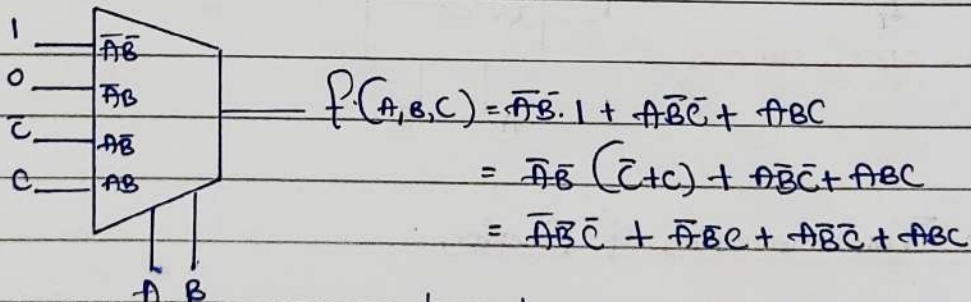 1 A̅B̅
0 A̅B
C̅ AB̅
C AB
f(A,B,C) = A̅B̅.1 + AB̅C̅ + ABC
= A̅B̅ (C̅+C) + AB̅C̅ + ABC
= A̅B̅C̅ + A̅B̅C + AB̅C̅ + ABC
A B